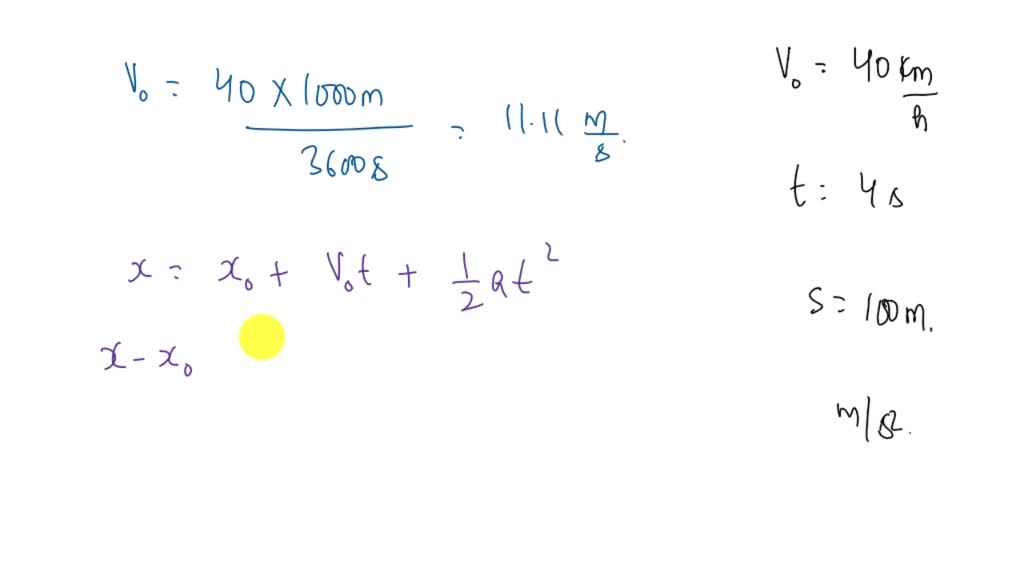 V₀ = 40 × 1000m / 3600s = 11.11 m/s.
x = x₀ + V₀t + 1/2 at²
x - x₀
V₀ = 40 km/h
t = 4s
s = 100m.
m/s².